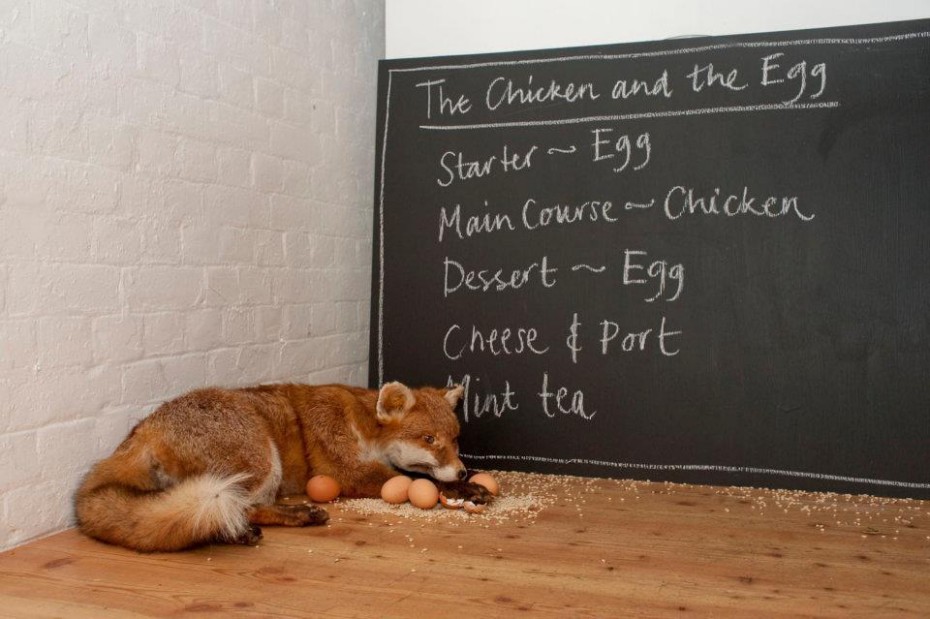 The Chicken and the Egg
Starter ~ Egg
Main Course ~ Chicken
Dessert ~ Egg
Cheese & Port
Mint tea